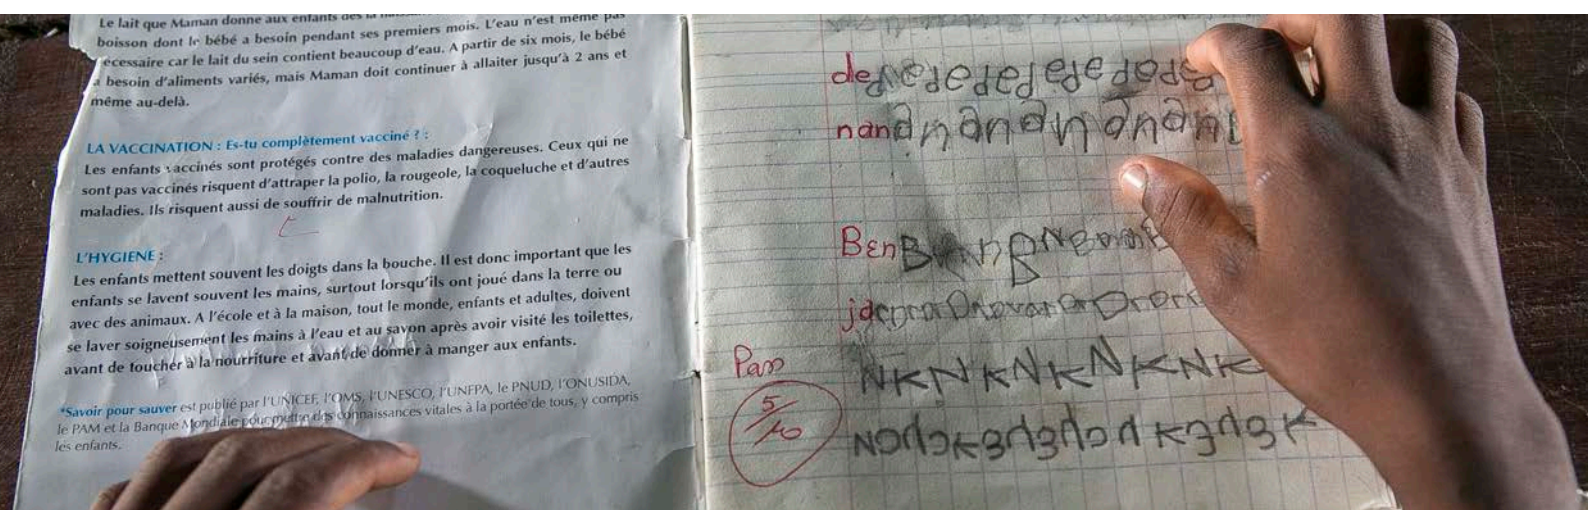 Le lait que Maman donne aux enfants dès la
boisson dont le bébé a besoin pendant ses premiers mois. L'eau n'est même pas
écessaire car le lait du sein contient beaucoup d'eau. A partir de six mois, le bébé
a besoin d'aliments variés, mais Maman doit continuer à allaiter jusqu'à 2 ans et
même au-delà.
LA VACCINATION : Es-tu complètement vacciné ? :
Les enfants vaccinés sont protégés contre des maladies dangereuses. Ceux qui ne
sont pas vaccinés risquent d'attraper la polio, la rougeole, la coqueluche et d'autres
maladies. Ils risquent aussi de souffrir de malnutrition.
L'HYGIENE :
Les enfants mettent souvent les doigts dans la bouche. Il est donc important que les
enfants se lavent souvent les mains, surtout lorsqu'ils ont joué dans la terre ou
avec des animaux. A l'école et à la maison, tout le monde, enfants et adultes, doivent
se laver soigneusement les mains à l'eau et au savon après avoir visité les toilettes,
avant de toucher à la nourriture et avant de donner à manger aux enfants.
*Savoir pour sauver est publié par l'UNICEF, l'OMS, l'UNESCO, l'UNFPA, le PNUD, l'ONUSIDA,
le PAM et la Banque Mondiale pour mettre des connaissances vitales à la portée de tous, y compris
les enfants.
de
nan
Ben
Pas
NKNKNKNKNK
5/10